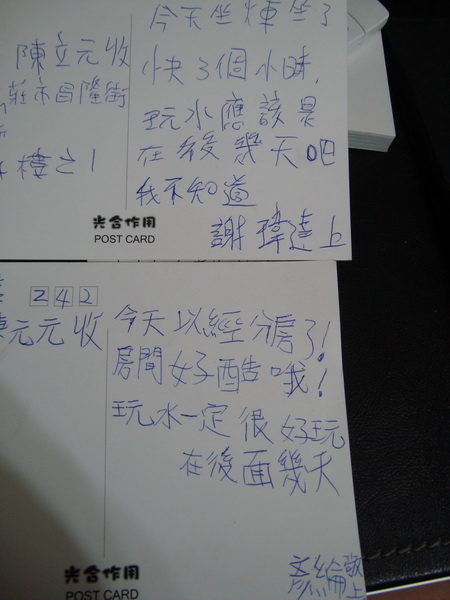 陳立元收
莊市昌隆街
樓之1
今天坐車坐了
快3個小時,
玩水應該是
在後幾天吧
我不知道
謝瑋達上
光合作用
POST CARD
242
元元收
今天以經分房了!
房間好酷哦!
玩水一定很好玩
在後面幾天
彥綸敬上
光合作用
POST CARD